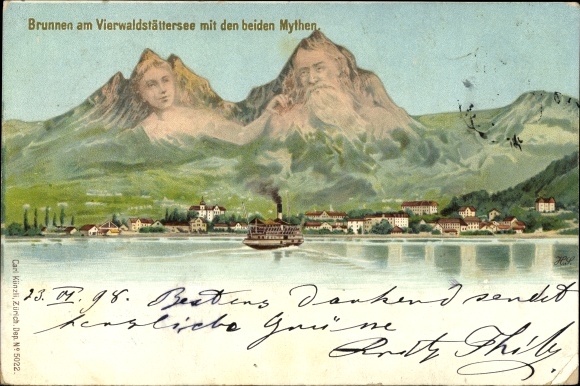 Brunnen am Vierwaldstättersee mit den beiden Mythen.
Carl Künzli, Zürich. Dep. Nº 5022.
23. VI. 98. Bestens dankend sendet
herzliche Grüsse